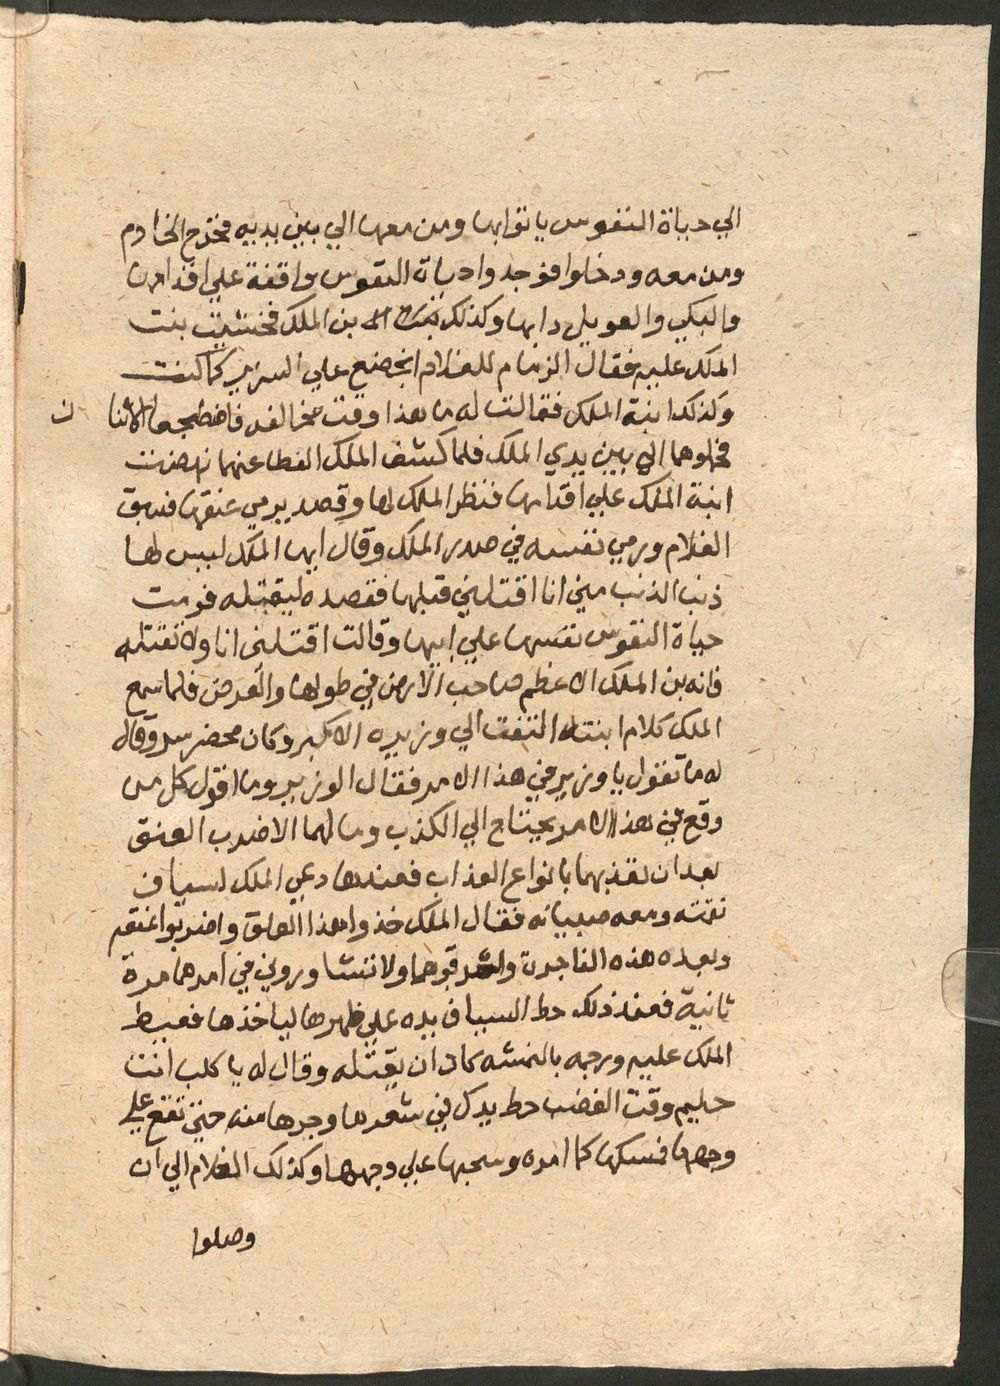 الي حياة النفوس ياتوا بها ومن معها الي بين يديه فخرج الخادم
ومن معه ودخلوا فوجدوا حياة النفوس واقفة علي اقدامها
والبكي والعويل دابها وكذلك بن الملك فخشيت بنت
الملك عليه فقال الزمام للغلام انجضع علي السرير كما كنت
وكذلك ابنة الملك فقالت له ما هذا وقت مخالفه فاضطجعا الاثنا ن
فحملوهما الي بين يدي الملك فلما كشف الملك الغطا عنهما نهضت
ابنة الملك علي اقدامها فنظر الملك لها وقصد يرمي عنقها فسبق
الغلام ورمي نفسه في صدر الملك وقال ايها الملك ليس لها
ذنب الذنب مني انا اقتلني قبلها فقصده ليقتله فرمت
حياة النفوس نفسها علي ابيها وقالت اقتلني انا ولا تقتله
فانه بن الملك الاعظم صاحب الارض في طولها والعرض فلما سمع
الملك كلام ابنته التفت الي وزيره الاكبر وكان محضر سو وقال
له ما تقول يا وزير في هذا الامر فقال الوزير وما اقول كل من
وقع في هذا الامر يحتاج الي الكذب وما لهما الا ضرب العنق
بعد ان تعذبهما بانواع العذاب فعندها دعي الملك لسياف
نقمته ومعه صبيانه فقال الملك خذوا هذا العلق واضربوا عنقه
وبعده هذه الفاجرة وحرقوهما ولا تتشاوروني في امرهما مرة
ثانية فعند ذلك حط السياف يده علي ظهرها لياخذها فعيط
الملك عليه ورجمه بالنمشه كاد ان يقتله وقال له يا كلب انت
حليم وقت الغضب حط يدك في شعرها وجرها منه حتي تقع علي
وجهها فمسكها كما امره وسحبها علي وجهها وكذلك الغلام الي ان
وصلوا